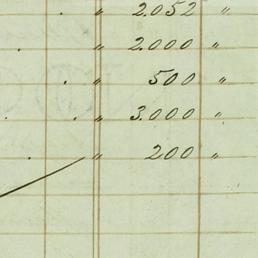 . " 2.052 "
. " 2.000 "
. " 500 "
. . " 3.000 "
. " 200 "